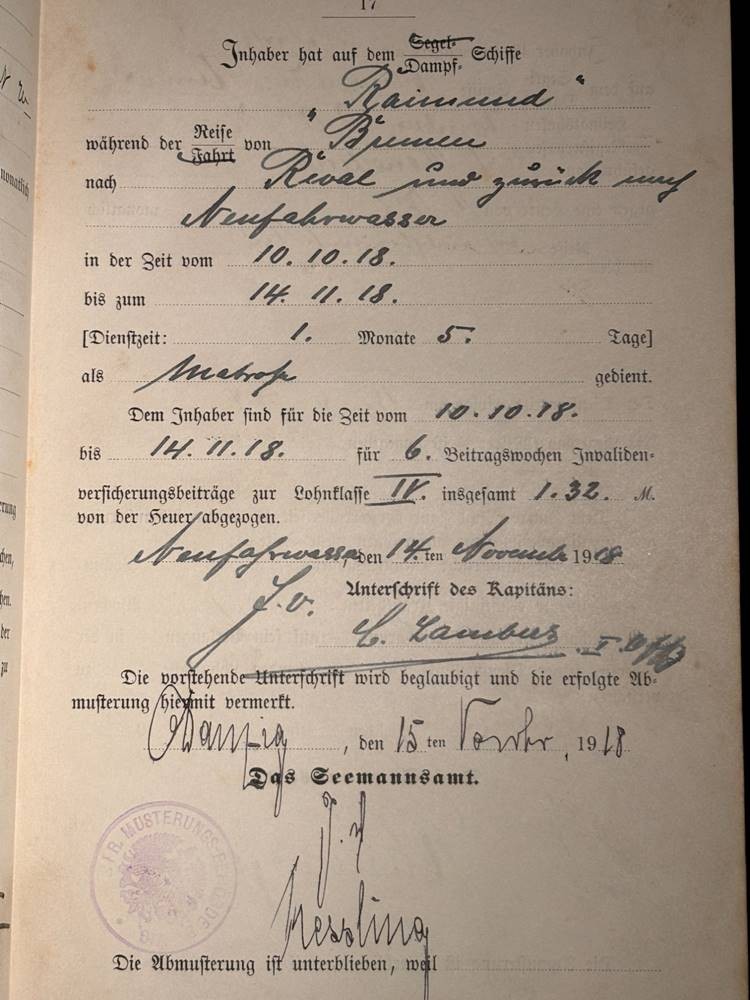 17
Inhaber hat auf dem Segel- Dampf- Schiffe
"Raimund"
während der Reise Fahrt von "Bremen
nach Rêval und zurück nach
Neufahrwasser
in der Zeit vom 10. 10. 18.
bis zum 14. 11. 18.
[Dienstzeit: 1. Monate 5. Tage]
als Matrose gedient.
Dem Inhaber sind für die Zeit vom 10. 10. 18.
bis 14. 11. 18. für 6. Beitragswochen Invaliden-
versicherungsbeiträge zur Lohnklasse IV. insgesamt 1.32. M.
von der Heuer abgezogen.
Neufahrwasser, den 14. ten November 1918
Unterschrift des Kapitäns:
I. Offz
Die vorstehende Unterschrift wird beglaubigt und die erfolgte Ab-
musterung hiermit vermerkt.
Danzig, den 15 ten Novbr, 1918
Das Seemannsamt.
MUSTERUNGS-
Die Abmusterung ist unterblieben, weil